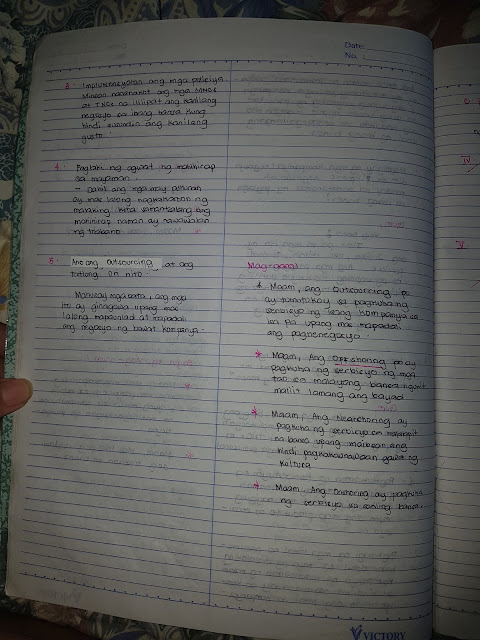 Date:
No. :
3. Impluwensyahan ang mga polisiya
Minsan nananakot ang mga MNCs
at TNCs na ililipat ang kanilang
negosyo sa ibang bansa kung
hindi susundin ang kanilang
gusto
4. Paglaki ng agwat ng mahihirap
sa mayaman.
- Dahil ang mga may
ay mas lalong nagkakaroon ng
malaking kita samantalang ang
mahihirap naman ay nawawalan
ng trabaho
5. Ano ang outsourcing at ang
tatlong uri nito
Mahusay mga bata, ang mga
ito ay ginagawa upang mas
lalong mapaunlad at mapadali
ang negosyo ng bawat kompanya-
Mag-aaral
* Maam, ang Outsourcing po
ay tumutukoy sa pagkuha ng
serbisyo ng isang kompanya sa
iba pa upang mas mapadali
ang pagnenegosyo
* Maam, Ang Offshoring po ay
pagkuha ng serbisyo ng mga
tao sa malayong bansa ngunit
maliit lamang ang bayad
* Maam, Ang Nearshoring ay
pagkuha ng serbisyo sa
na bansa upang maiwasan ang
hindi pagkakaunawaan gawa ng
Kultura
* Maam, Ang Onshoring ay pagkuha
ng serbisyo sa sariling bansa.
IV
V
VICTORY